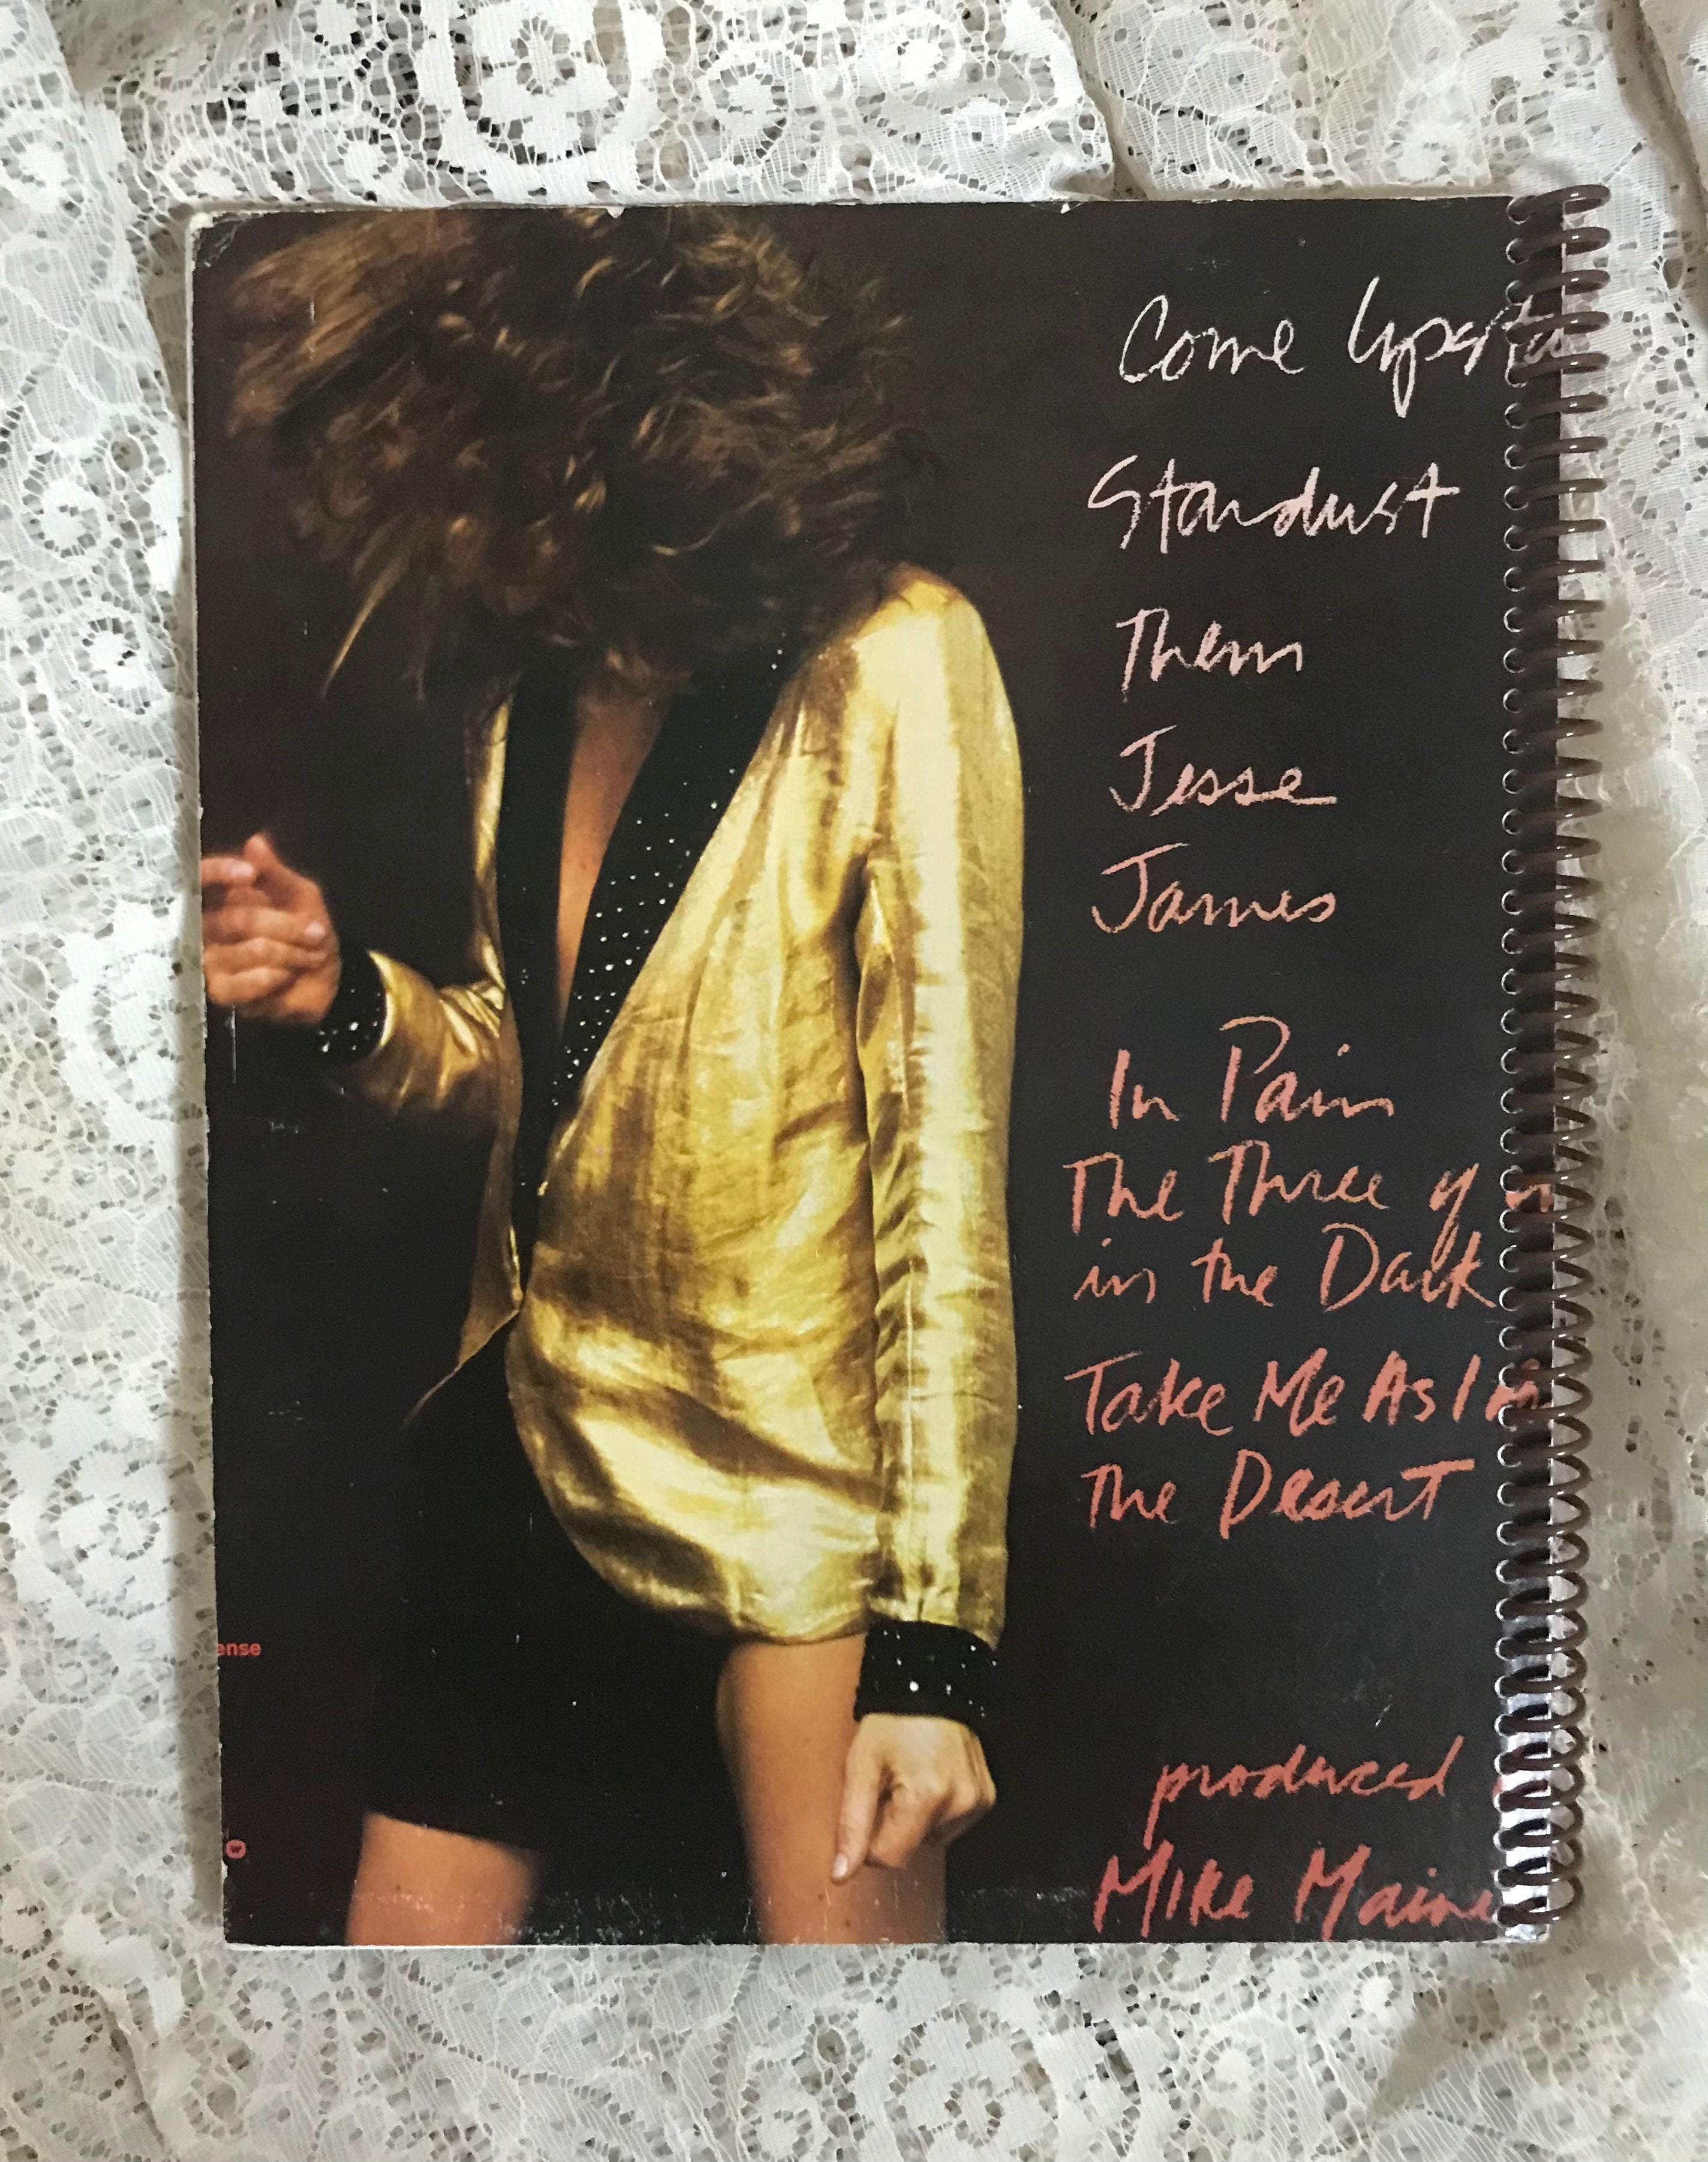 Come Upsta
Stardust
Them
Jesse
James
In Pain
The Three of
in the Dark
Take Me As I
The Desert
ense
produced
w
Mike Maine